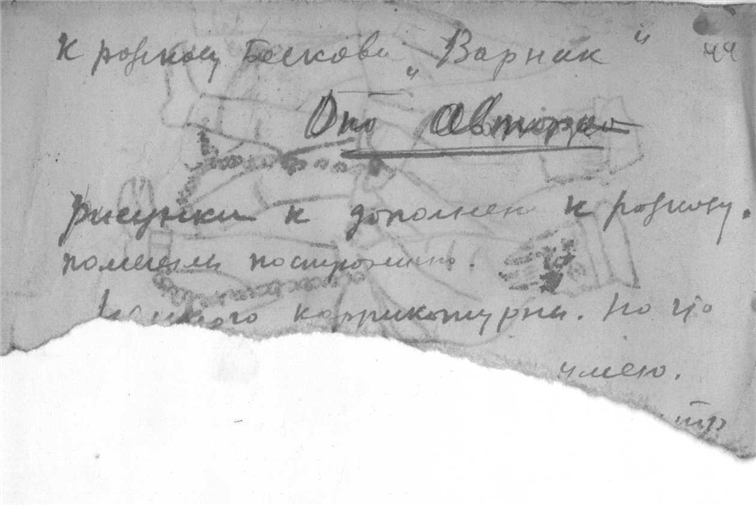 К роману Бескова „Варнак" 44
От автора
рисунки к дополнен к роману.
помещены постранично.
карикатурны. но что
умею.